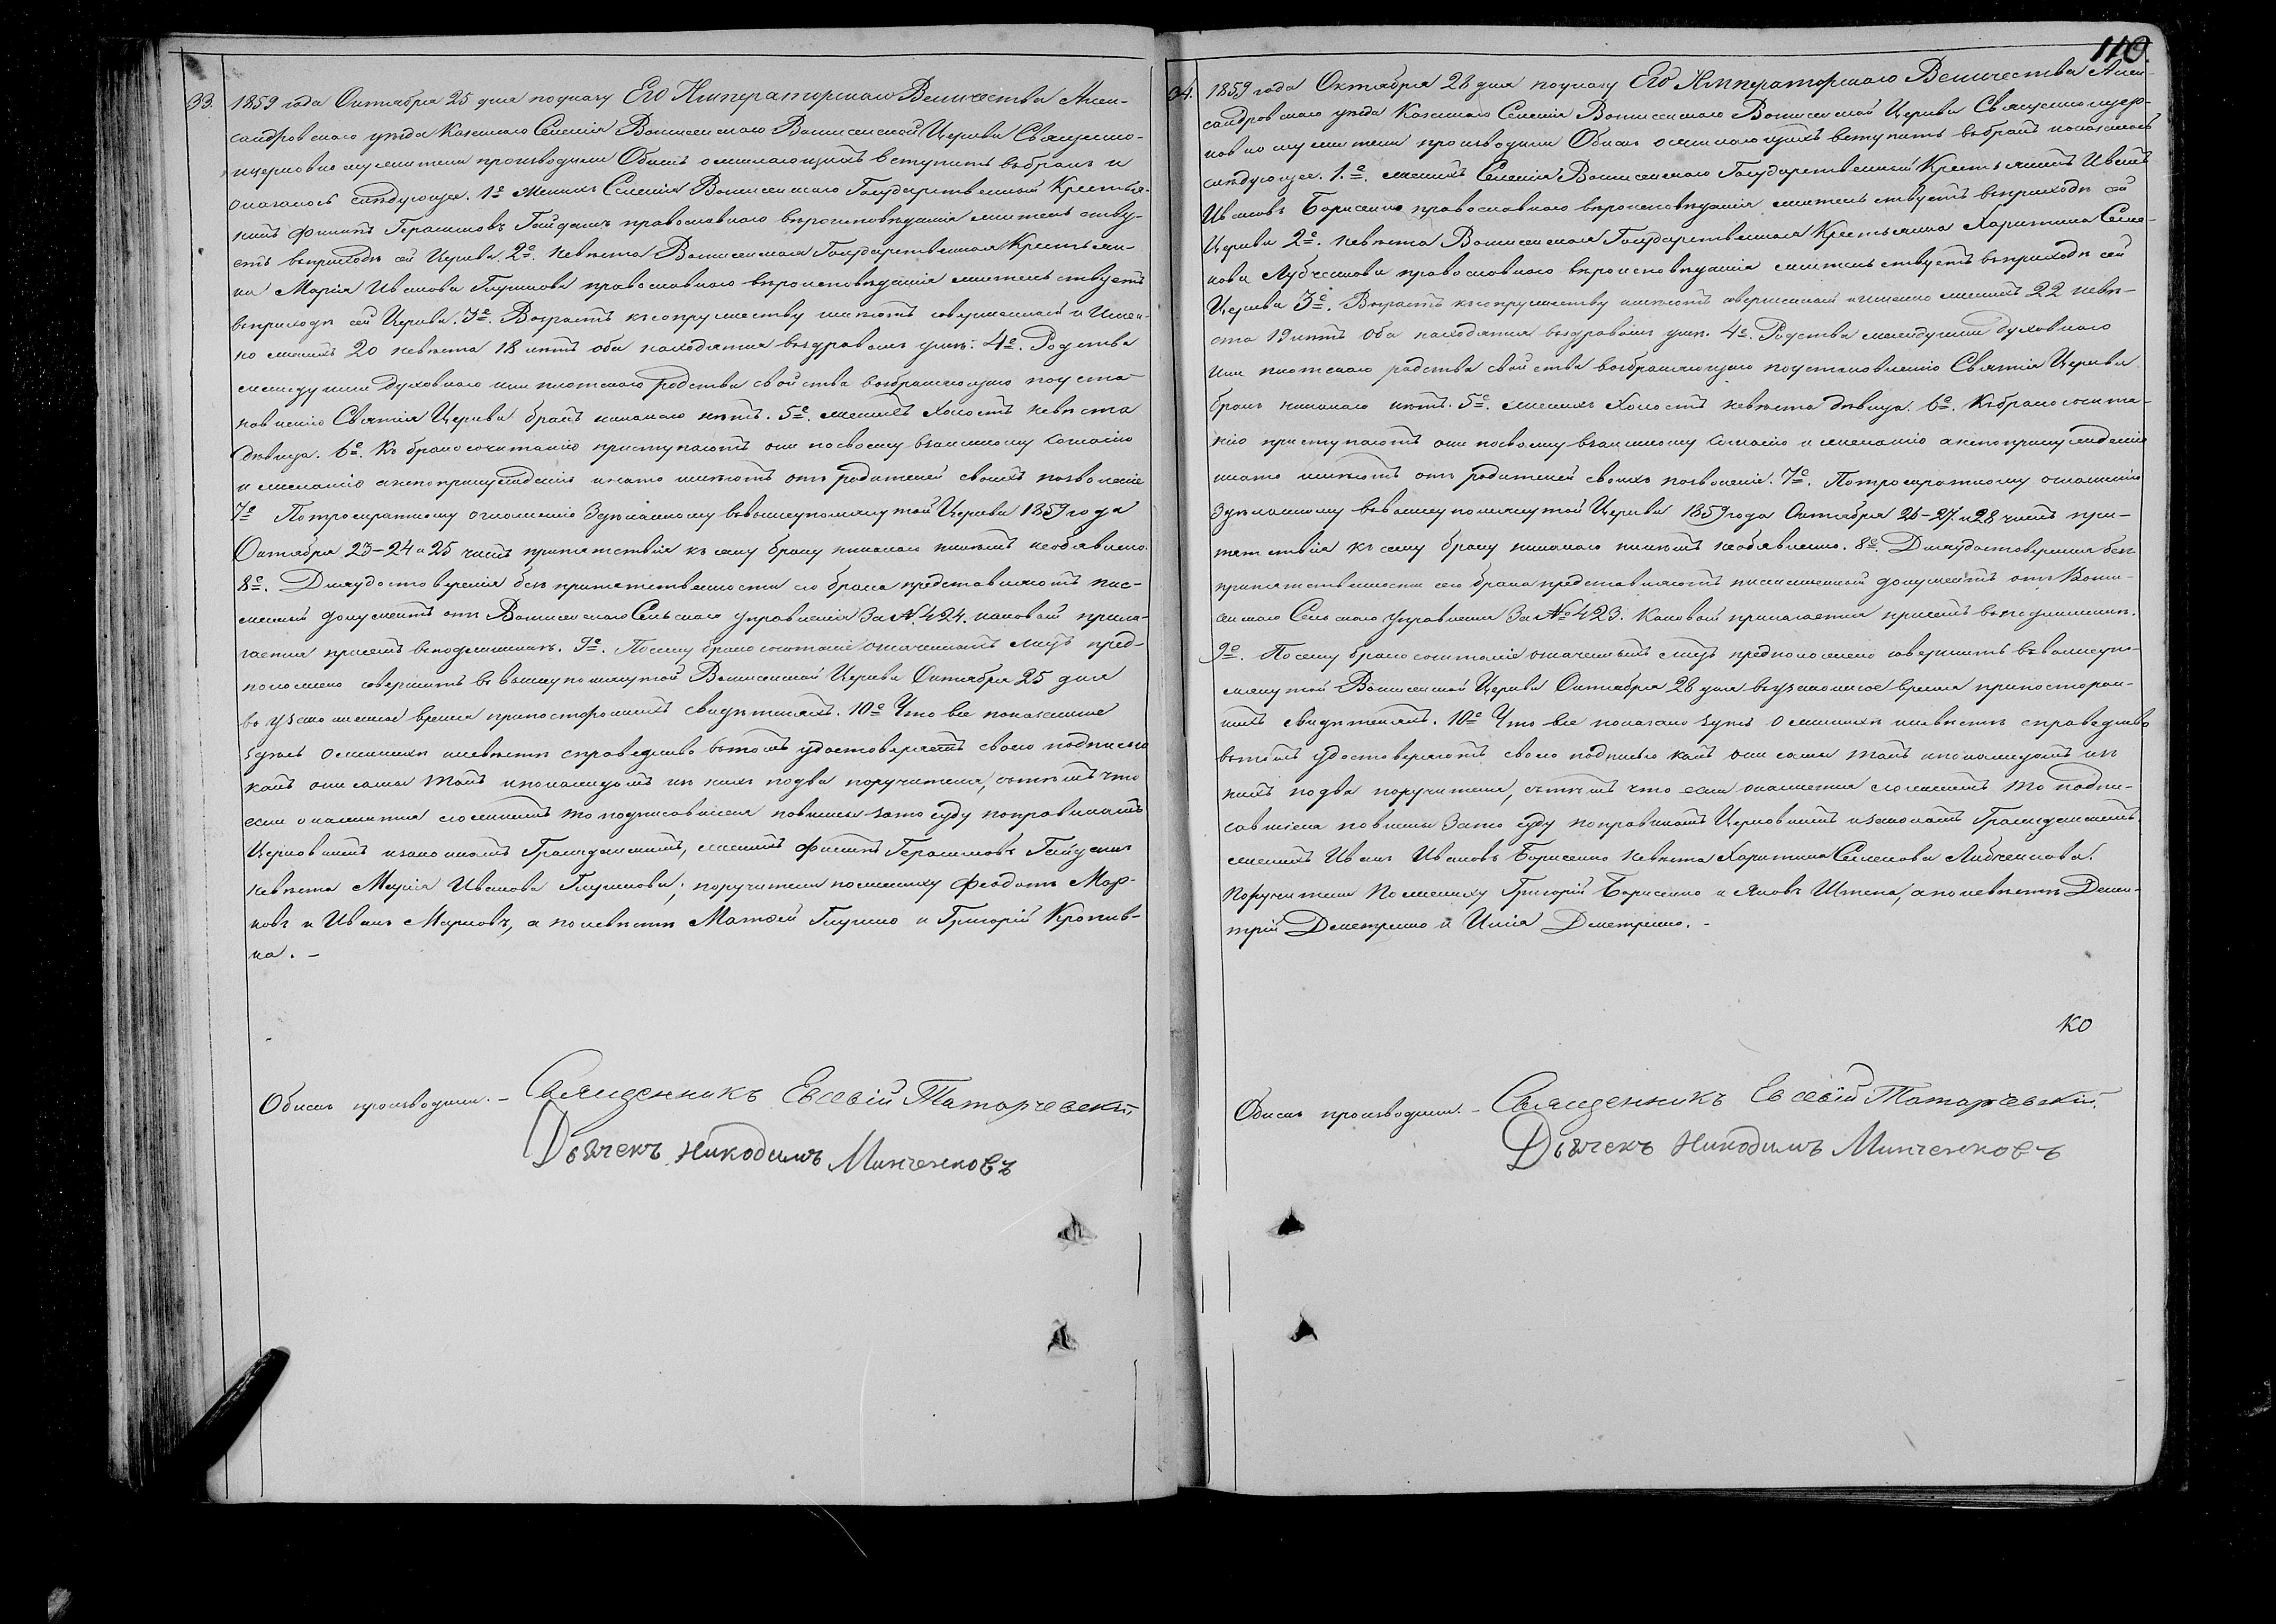 33. 1859 года Октября 25 дня по указу Его Императорскаго Величества Алек-
сандровскаго уѣзда Казеннаго Селенія Вознесенской Церкви Священно-
ицерковно служители производили Обыскъ о желающихъ вступить въ бракъ и
оказалось слѣдующее. 1е Женихъ Селенія Государственный Крестья-
нинъ Филипъ Герасимовъ Гайдашъ православнаго вѣроисповѣданія жительству-
етъ въ приходѣ сей Церкви. 2е. Невѣста Государственная Крестьян-
ка Марія Иванова Глушкова православнаго вѣроисповѣданія жительствуетъ
въ приходѣ сей Церкви. 3е. Возрастъ къ сопружеству имѣютъ совершенный и Имен-
но женихъ 20 невѣста 18 лѣтъ оба находятся въ здравомъ умѣ. 4е. Родства
между ими духовнаго или плотскаго родства свойства возбраняющаго по уста-
новленію Святыя Церкви бракъ никакого нѣтъ. 5е. женихъ холостъ невѣста
дѣвица. 6е. Къ бракосочитанію приступаютъ они по своему взаимному согласію
и желанію а не по принужденію и на то имѣютъ отъ родителей своихъ позволеніе
7е По троекратному оглашенію Здѣланному въ вышеупомянутой Церкви 1859 года
Октября 23-24 и 25 числъ припятствія къ сему браку никакого никѣмъ необявлено.
8е. Для удостовѣренія безпрепятственности сего брака представляютъ пись-
менный документъ отъ Сельскаго Управленія За №. 424. каковый прила-
гается присемъ въ подлинникѣ. 9е. По сему бракосочитаніе означенныхъ лицъ пред-
положено совершить въ вышеупомянутой Церкви Октября 25 дня
въ узаконенное время при постороннихъ свидѣтеляхъ. 10е Что все показанное
здѣсь о женихѣ и невѣстѣ справедливо въ томъ удостовѣряютъ своею подписью
какъ они сами такъ и по каждомъ из нихъ по два поручителя, съ тѣмъ что
если окажется что ложнымъ то подписавшіеся повинны зато суду по правиламъ
Церковнымъ и законамъ Гражданскимъ, женихъ Филипъ Герасимовъ Гайдашъ
невѣста Марія Иванова Глушкова; поручители по жениху Феодотъ Мар-
ковъ и Иванъ Марковъ, а по невѣстѣ Матфей Глушко и Григорій Кропив-
ка. -
Обыскъ производили. - Священникъ Евсевій Татарчевскій
Дьячекъ Никодимъ Минченковъ
110.
34. 1859 года Октября 28 дня по указу Его Императорскаго Величества Алек-
сандровскаго уѣзда Казеннаго Селенія Церкви Священноицер-
ковно служители производили Обыскъ о желающихъ вступить въ бракъ и оказалось
слѣдующее. 1.е. женихъ Селенія Государственный Крестьянинъ Иванъ
Ивановъ Борисенко православнаго вѣроисповѣданія жительствуетъ въ приходѣ сей
Церкви 2е. невѣста Государственная Крестьянка Харитина Семе-
нова православнаго вѣроисповѣданія жительствуетъ въ приходѣ сей
Церкви 3е. Возрастъ къ сопружеству имѣютъ совершенный и именно женихъ 22 невѣ-
ста 19 лѣтъ Оба находятся въ здравомъ умѣ. 4е. Родства между ими духовнаго
или плотскаго родства свойства возбраняющаго по установленію Святыя Церкви
бракъ никакого нѣтъ. 5е. женихъ Холостъ невѣста дѣвица. 6е. Къ бракосочита-
нію приступаютъ они по своему взаимному согласію и желанію а не по принужденію
и на то имѣютъ отъ родителей своихъ позволеніе. 7е. По троекратному оглашенію
Здѣланному въ вышеупомянутой Церкви 1859 года Октября 26-27 и 28 числъ при-
пятствія къ сему браку никакого никѣмъ необявлено. 8е. Для удостовѣренія без-
припятственности сего брака представляютъ письменный документъ отъ Возне-
сенскаго Сельскаго Управленія За №423. Каковый прилагается присемъ въ подлинникѣ.
9е. По сему бракосочитаніе означенныхъ лицъ предположено совершить въ вышеупо-
мянутой Церкви Октября 28 дня въ узаконенное время при посторон-
нихъ свидѣтеляхъ. 10е Что все показано здѣсь о женихѣ и невѣстѣ справедливо
въ томъ удостовѣряютъ своею подписью какъ они сами такъ и по каждомъ из
нихъ по два поручителя, съ тѣмъ что если окажется что ложнымъ то подпи-
савшіеся повинны Зато суду по правиламъ Церковнымъ и законамъ Гражданскимъ.
женихъ Иванъ Ивановъ Борисенко невѣста Харитина Семенова
Поручители По жениху Григорій Борисенко и Яковъ Штепа, а по невѣстѣ Дими-
трій Деметренко и Илія Деметренко. -
ко
Обыскъ производили. - Священникъ Евсевій Татарчевскій.
Дьячекъ Никодимъ Минченковъ